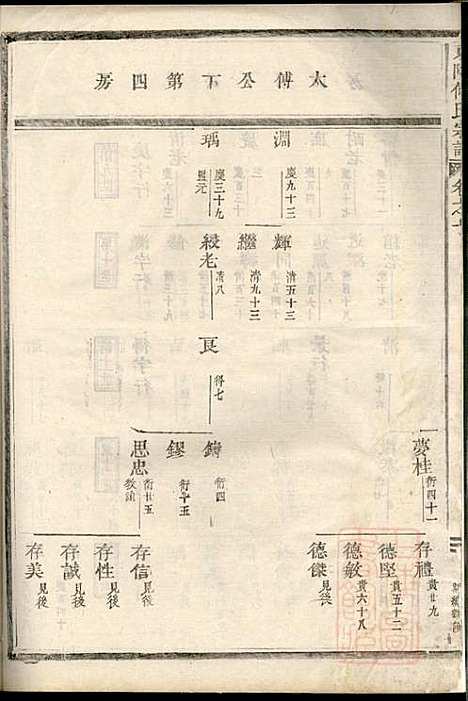 太傅公下第四房
淵
慶九十三
瑀
慶三十九
輝
清五十三
繼
清九十三
綬老
清八
良
得七
夢桂
衍四十一
鑄
衍四
鏐
衍十五
思忠
衍廿五
教諭
存禮
貴廿九
德堅
貴五十二
德敏
貴六十八
德傑
見後
存信
見後
存性
見後
存誠
見後
存美
見後